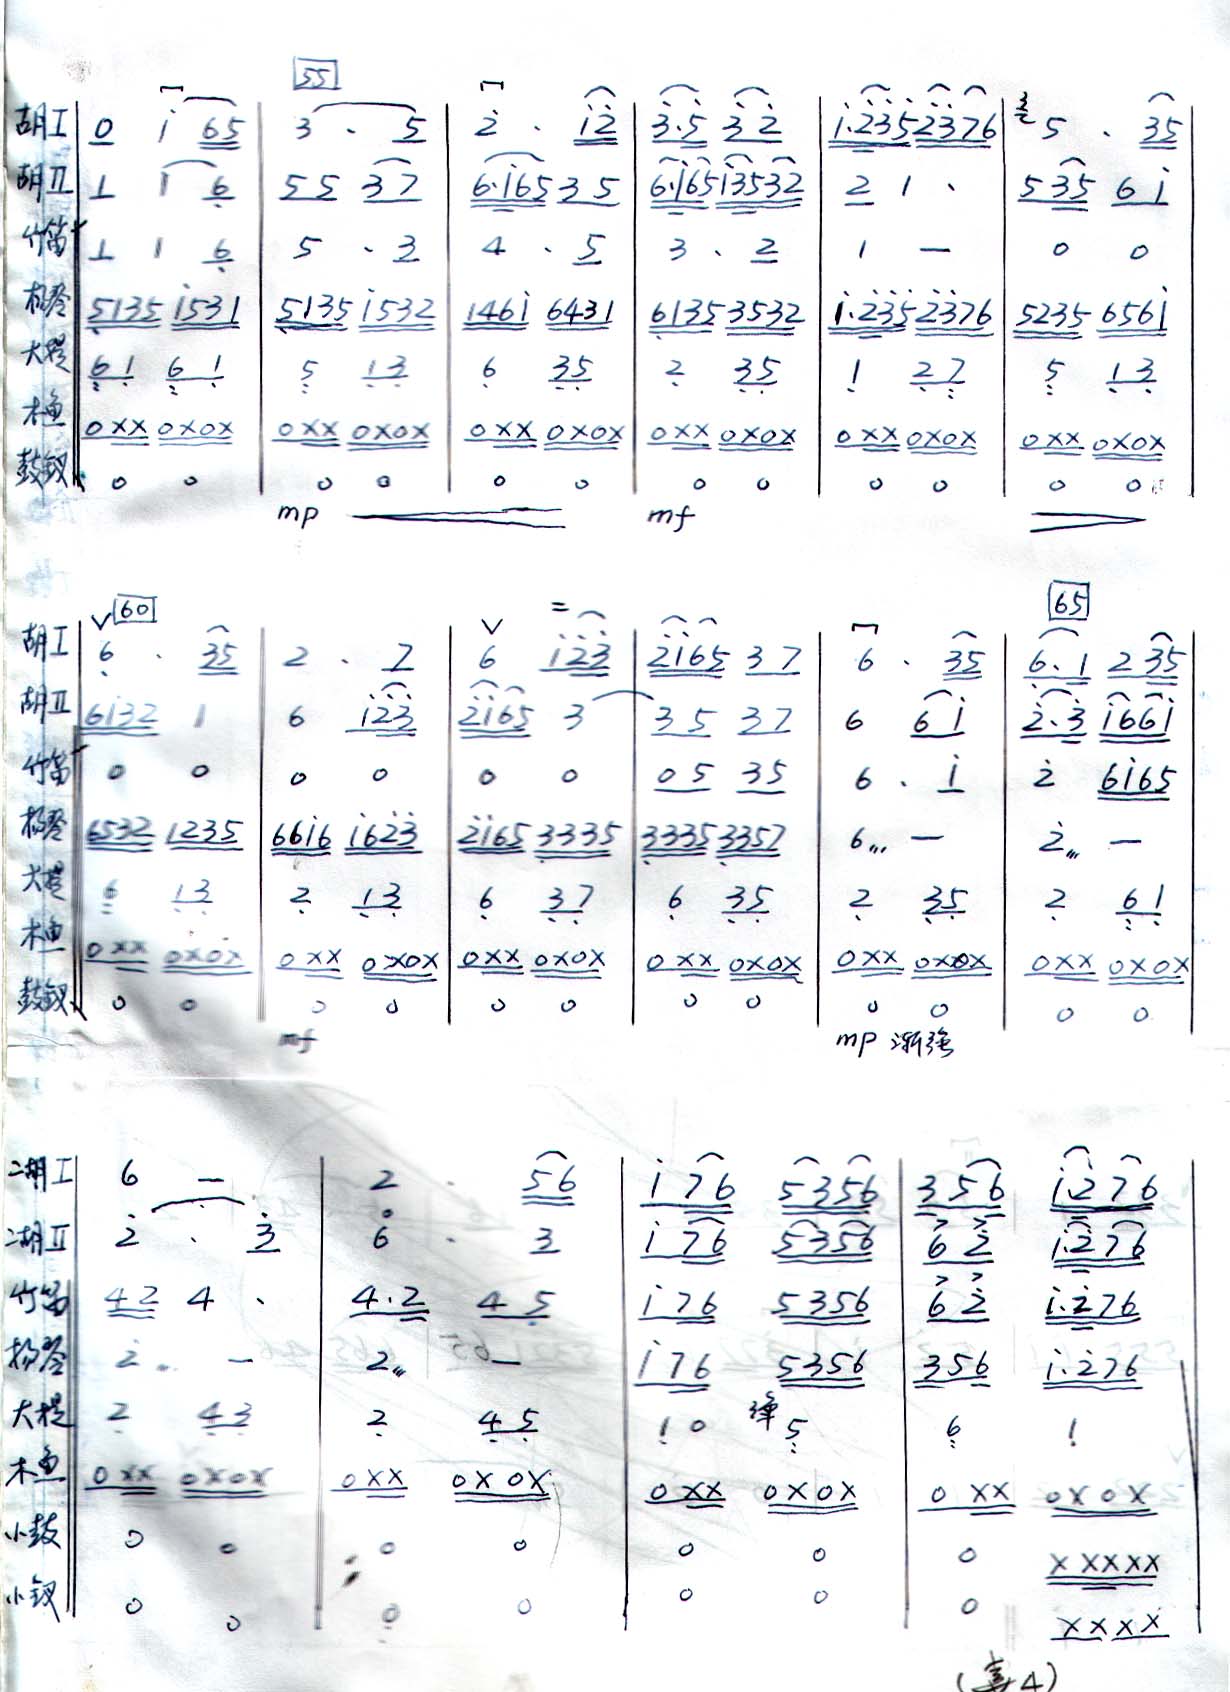 55
胡I 0 i 65 | 3 . 5 | 2 . i2 | 3.5 32 | 1.235 2376 | 5 . 35
胡II 1 1 6 | 55 37 | 6.i65 35 | 6.i65 i3532 | 2 1 . | 535 6i
竹笛 1 1 6 | 5 . 3 | 4 . 5 | 3 . 2 | 1 — | 0 0
扬琴 5135 i531 | 5135 i532 | 146i 6431 | 6135 3532 | 1.235 2376 | 5235 656i
大提 61 61 | 5 13 | 6 35 | 2 35 | 1 27 | 5 13
木鱼 0XX 0X0X | 0XX 0X0X | 0XX 0X0X | 0XX 0X0X | 0XX 0X0X | 0XX 0X0X
鼓钗 0 0 | 0 0 | 0 0 | 0 0 | 0 0 | 0 0
mp mf
60 65
胡I 6 . 35 | 2 . 7 | 6 i23 | 2i65 37 | 6 . 35 | 6.1 235
胡II 6i32 1 | 6 i23 | 2i65 3 | 35 37 | 6 6i | 2.3 i66i
竹笛 0 0 | 0 0 | 0 0 | 05 35 | 6 . i | 2 6i65
扬琴 6532 1235 | 66i6 i623 | 2i65 3335 | 3335 3357 | 6 — | 2 —
大提 6 13 | 2 13 | 6 37 | 6 35 | 2 35 | 2 61
木鱼 0XX 0X0X | 0XX 0X0X | 0XX 0X0X | 0XX 0X0X | 0XX 0X0X | 0XX 0X0X
鼓钗 0 0 | 0 0 | 0 0 | 0 0 | 0 0 | 0 0
mf mp 渐强
二胡I 6 — | 2 . 56 | i76 5356 | 356 i276
二胡II 2 . 3 | 6 . 3 | i76 5356 | 62 i.276
竹笛 42 4 . | 4.2 45 | i76 5356 | 62 i.276
扬琴 2 — | 2 — | i76 5356 | 356 i.276
大提 2 43 | 2 45 | 1 0 5 | 6 1
木鱼 0XX 0X0X | 0XX 0X0X | 0XX 0X0X | 0XX 0X0X
小鼓 0 0 | 0 0 | 0 0 | 0 XXXXX
小钗 0 0 | 0 0 | 0 0 | 0 XXXX
(喜4)